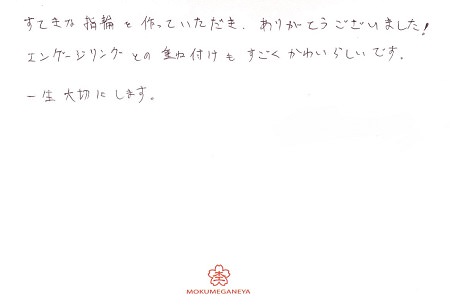 すてきな指輪を作っていただき、ありがとうございました!
エンゲージリングとの重ね付けもすごくかわいらしいです。
一生大切にします。
MOKUMEGANEYA